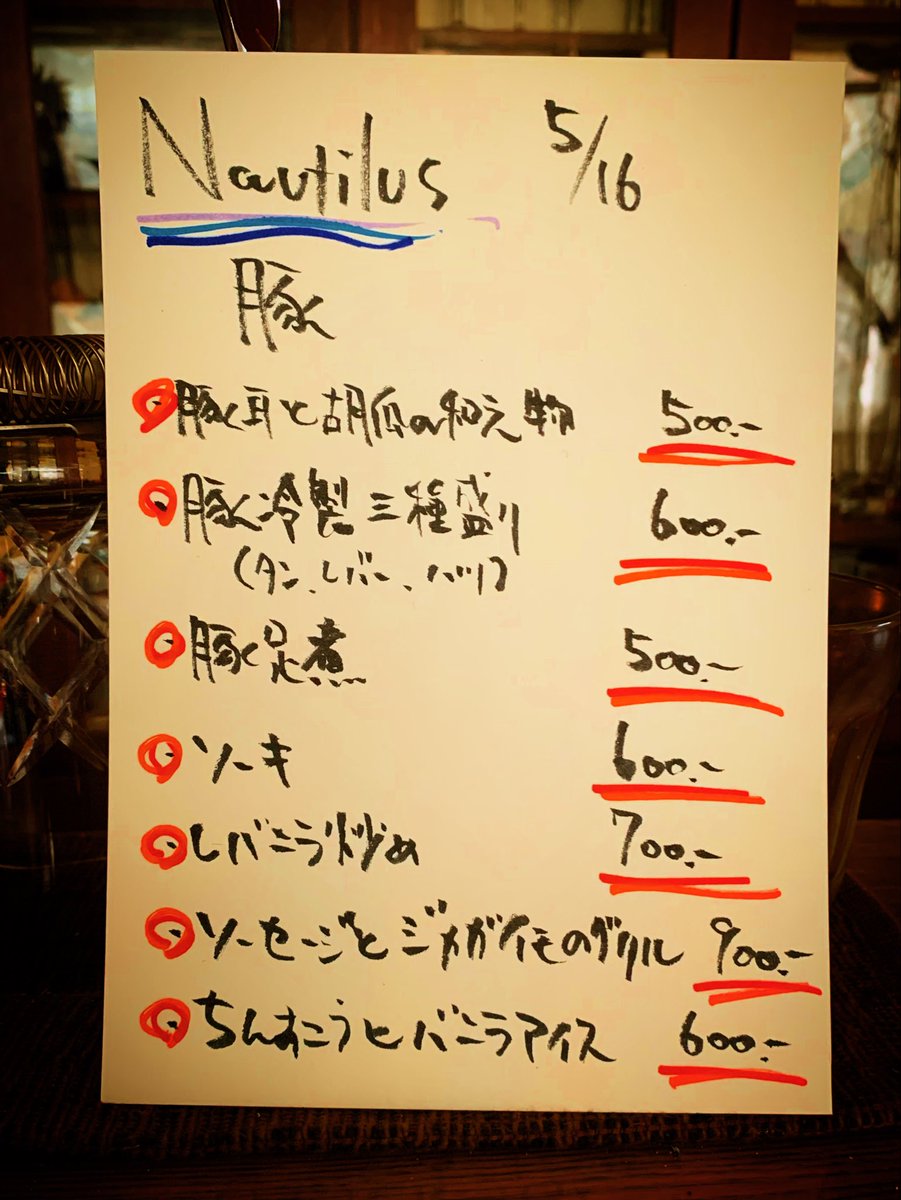 Nautilus 5/16
豚
豚耳と胡瓜の和え物 500.-
豚冷製三種盛り 600.-
(タン、レバー、ハツ)
豚足煮 500.-
ソーキ 600.-
レバニラ炒め 700.-
ソーセージとジャガイモのグリル 900.-
ちんすこうとバニラアイス 600.-